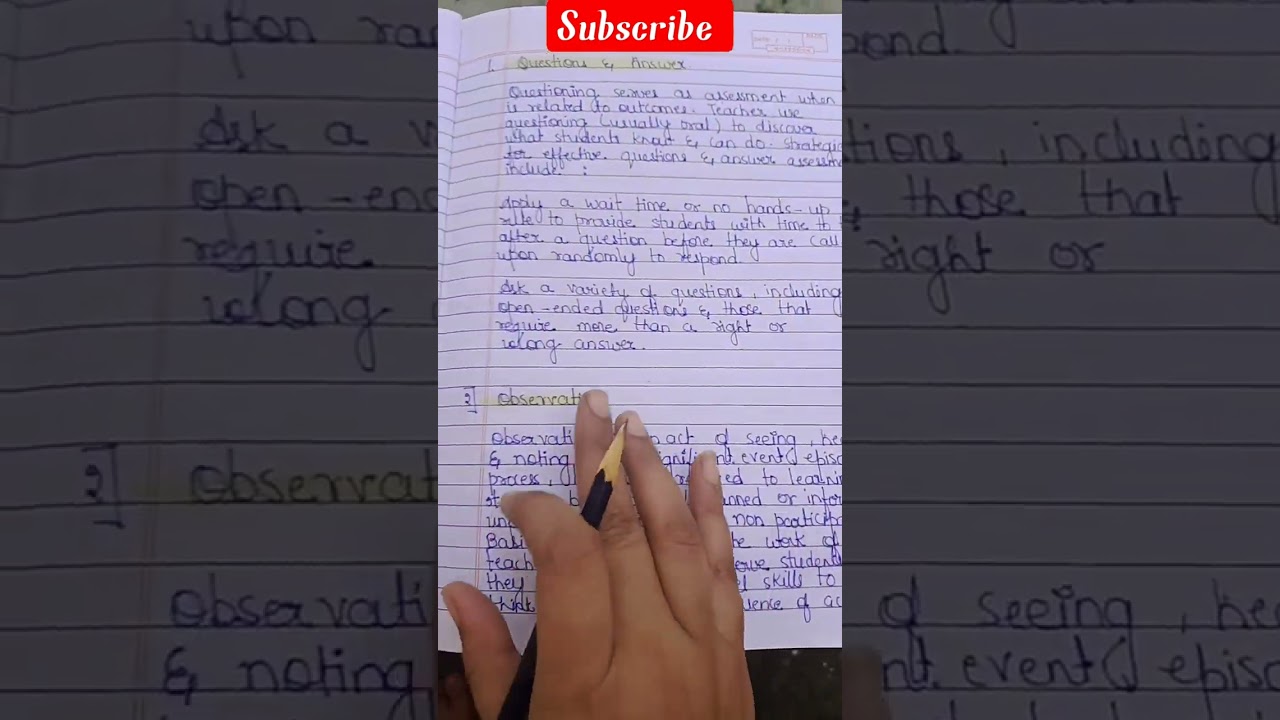 Subscribe
1. Questions & Answer
Questioning serves as assessment when
is related to outcomes. Teacher use
questioning (usually oral) to discover
what students know & can do. strategic
for effective questions & answer assessme
include :
Apply a wait time or no hands-up
rule to provide students with time to
after a question before they are call
upon randomly to respond.
Ask a variety of questions, including
open-ended questions & those that
require more than a right or
wlong answer.
2] Observati
Observati act of seeing, hea
& noting significant event( episo
process, to learnin
planned or infor
non participa
Basi the work of
teach observe students
they skills to
think of ac